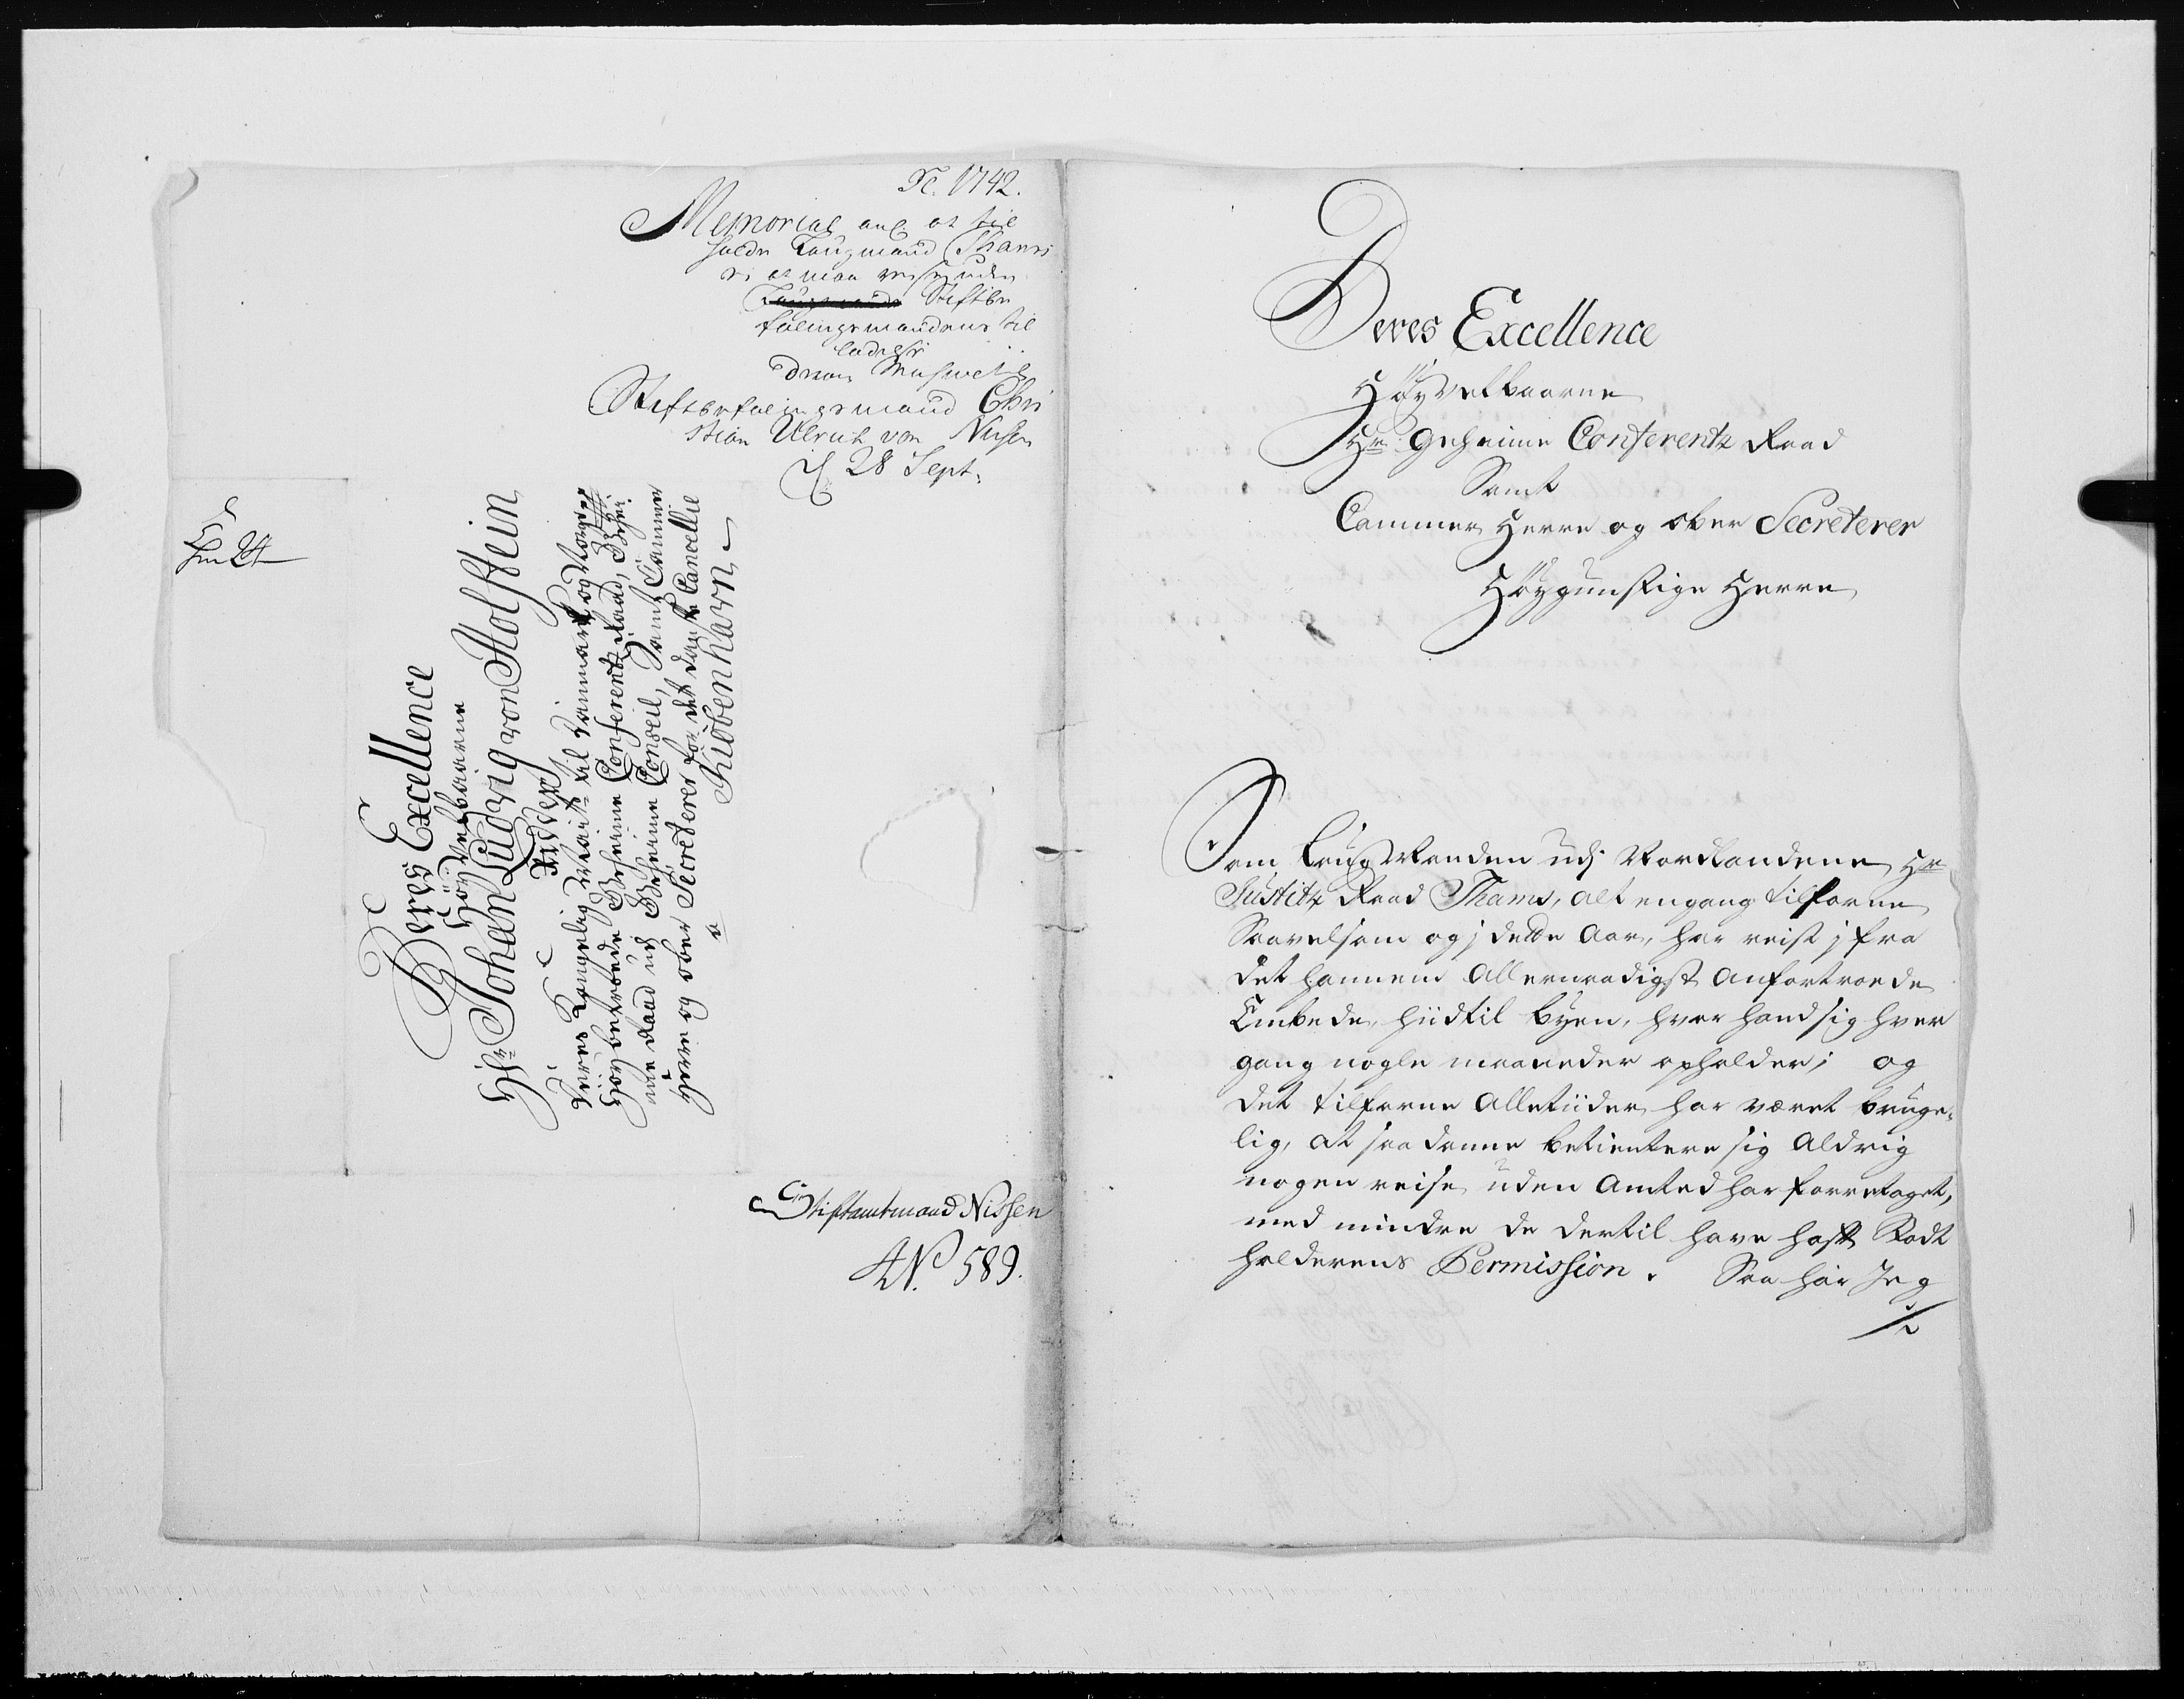 1742.
Memorial ang. at til
holde Laugmand Thams
ei at maa reise uden
Laugmands Stiftbe
falingsmandens til
ladelse
Stiftbefalingsmand Chri
stian Ulrich von Nissen
28 Sept.
Deres Excellence
Høÿ Velbaarne
Hr. Johan Ludvig von Holstein
Ridder
Deres Kongelig Maits. til Danmark og Norges
Høÿ betroede Geheime Conferentz Raad, Gehei¬
me Raad udi Geheime Conseil, Samt Cammer
Herre og ober Secreterer for det danske Cancellie
a Kiøbenhavn
Stiftamtmand Nissen
N. 589.
Deres Excellence
Høÿvelbaarne
Hr. Geheime Conferentz Raad
Samt
Cammer Herre og ober Secreterer
Høÿgunstige Herre
Som Laug Manden udj Nordlandene Hr.
Justitz Raad Thams, alt engang tilforne
Saavelsom og j dette Aar, har reist j fra
det hannem Allernaadigst Anfortroede
Embede, hiidtil Byen, hvor hand sig hver
gang nogle maaneder opholder; og
det tilforne Alletiider har været bruge¬
lig, at saadanne betientere sig Aldrig
nogen reise uden Amtet har forretaget,
med mindre de dertil have haft Stadt
holderens Permission. Saa har Jeg